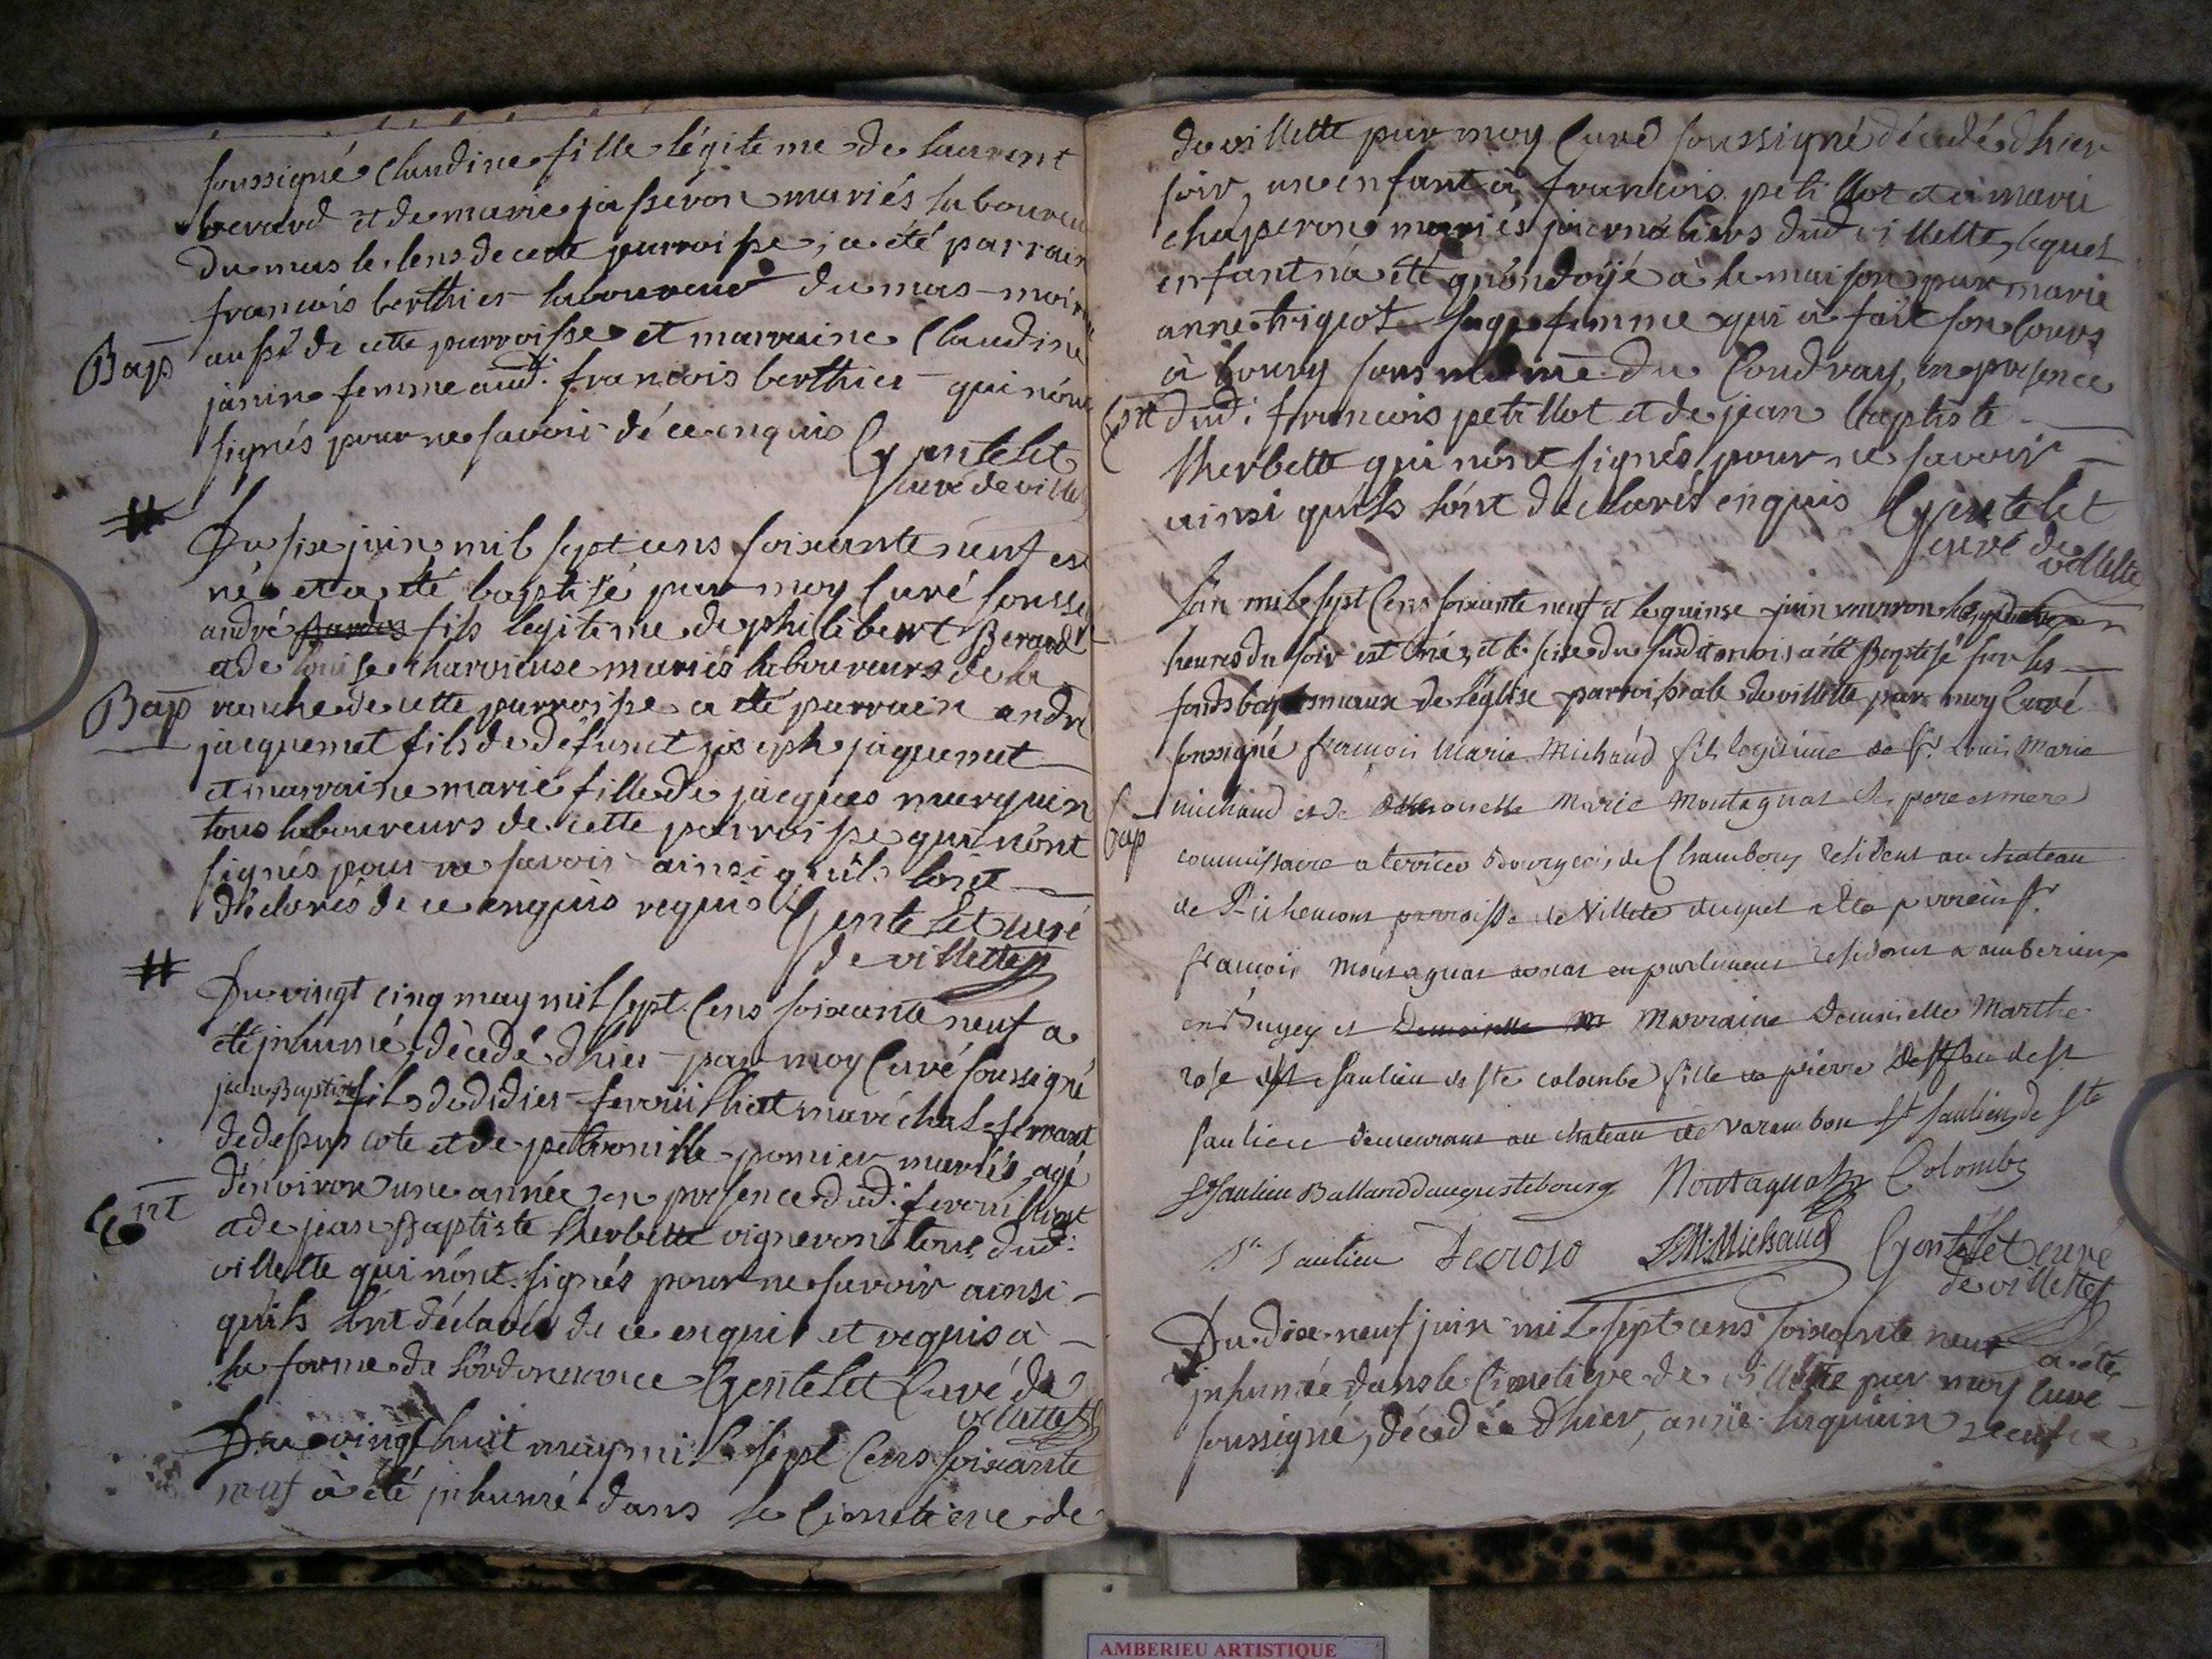 soussigné Claudine fille légiteme de laurent
berard et de marie josseron mariés laboureu
du mas le lens de cette parroisse, a été parrain
francois berthier laboureur du mas
Bap aussy de cette parroisse et marraine Claudine
janin femme aud. francois berthier qui nónt
signés pour ne savoir dé ce enquis
Gentelet
curé de ville
Du six juin mil sept cens soixante neuf est
né et a été baptisé par moy Curé sousse
andré fils legitime de philibert Berard
a de louise charvieuse mariés laboureurs de la
Bap ranche de cette parroisse a été parrain andré
jacquemet fils de défunct joseph jaquemet
et marraine marie fille de jacques
tous laboureurs de cette parroisse qui nónt
signés pour ne savoir ainsi quils lónt
déclarés de ce enquis requis
Gentelet curé
de villette
Du vingt cinq may mil sept Cens soixante neuf a
été jnhumé, décedé dhier par moy Curé soussigné
jean Baptiste fils de didier marechal
de dessus cote et de petronille pomier mariés, agé
dénviron une année en presence dud.
Ent a de jean Baptiste therbette vigneron tous dud.
villette qui nónt signés pour ne savoir ainsi
quils lónt déclarés de ce enquis et requis à
la forme de lórdonnance Gentelet Curé de
villette
Du vingt huit may mil sept Cens soixante
neuf à été jnhumé dans le Cimetiere de
de villette par moy Curé soussigné décedé dhier
soir, un enfant à francois petillot et à marie
chaperon mariés journaliers dud villette, lequel
enfant ná été quóndoÿé à la maison par marie
anne sage femme qui à fait son Cours
à bourg sous du Coudray, en presence
Ent dud. francois petillot et de jean baptiste
therbette qui nónt signés pour ne savoir
ainsi quils lónt déclarés enquis Gentelet
curé de
villette
Lán mil sept Cens soixante neuf et le quinse juin environ les
heures du soir est né, et le seise du susdit mois a été Baptisé sur les
fonds baptesmaux de léglise parroissiale de villette par moy Curé
soussigné françois Marie Michaud fils legitime de Sr. Louis Marie
Bap michaud et de Marie Montagnat ses pere et mere
commissaire a terrier Bourgeois de Chambery résident au chateau
de Richemont parroisse de Villete duquel a été parrein Sr.
françois Montagnat avocat en parlement residant a amberieux
en Bugey et Demoiselle Marraine Demoiselle Marthe
rose de St saulieu de ste colombe fille de pierre de St
saulieu demeurant au chateau de varambon St Saulieu de Ste
St Saulieu Balland daugustebourg Montagnat Colombe
St Saulieu Decroso LMMichaud Gentelet curé
de villette
Du dixe neuf juin mil sept cens soixante neuf a été
jnhumée dans le Cimetiere de villette par moy Curé
soussigné, décedée dhier, anne
AMBERIEU ARTISTIQUE